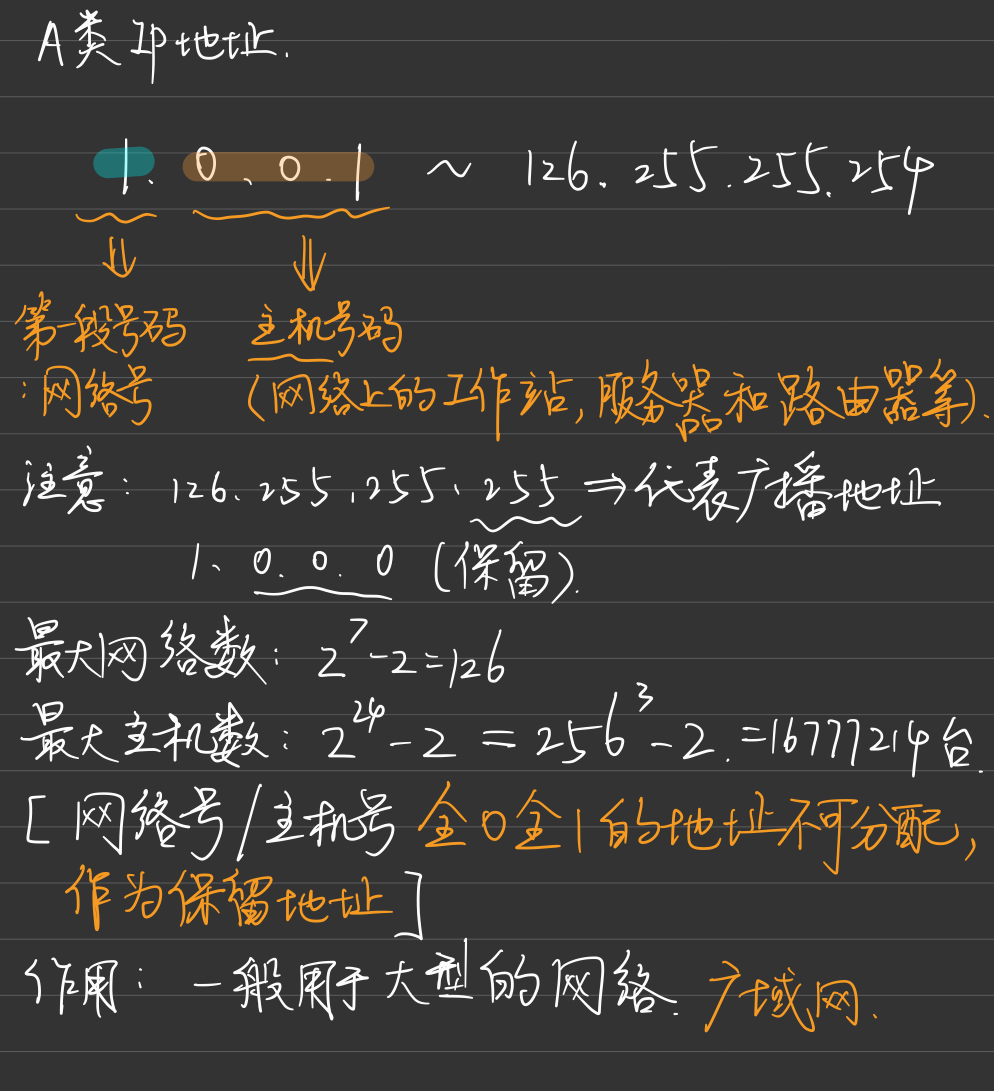 A类IP地址.
1. 0. 0. 1 ~ 126. 255. 255. 254
第一段号码 主机号码
:网络号 (网络上的工作站,服务器和路由器等).
注意: 126. 255. 255. 255 ⇒代表广播地址
1、0. 0. 0 (保留).
最大网络数: 2⁷-2=126
最大主机数: 2²⁴-2 = 256³-2. =16777214台.
[网络号/主机号 全0全1的地址不可分配,
作为保留地址]
作用: 一般用于大型的网络. 广域网.